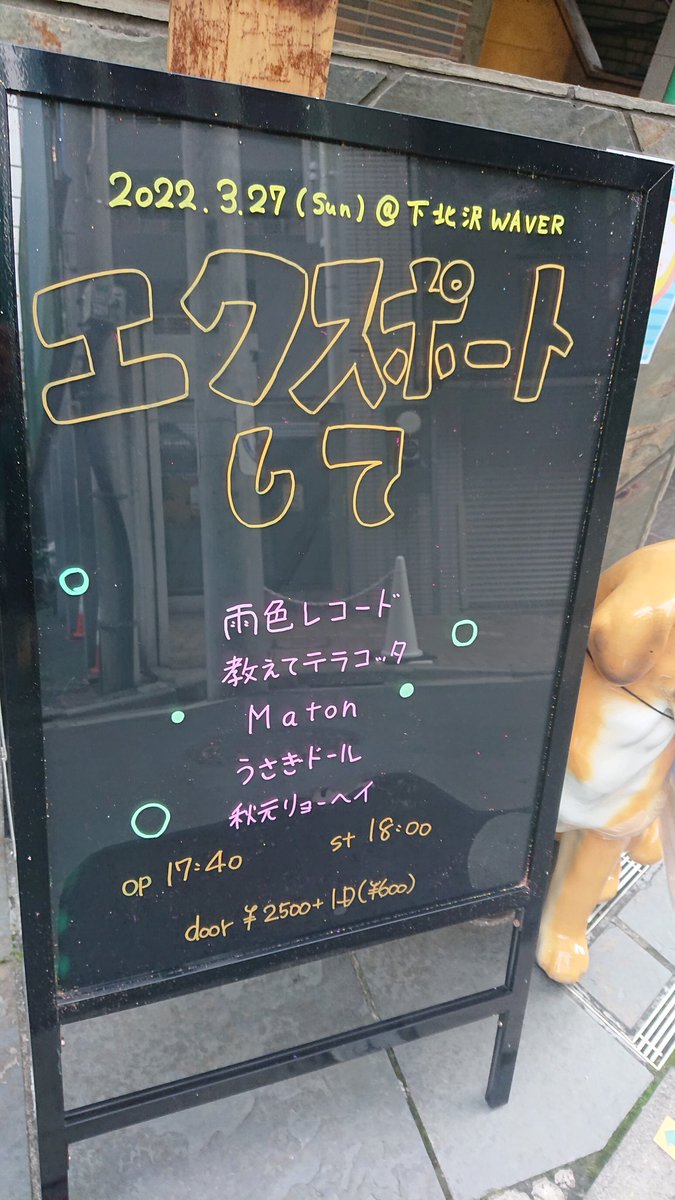 2022.3.27(Sun)@下北沢WAVER
エクスポート
して
雨色レコード
教えてテラコッタ
Maton
うさぎドール
秋元リョーヘイ
OP 17:40 st 18:00
door ¥2500+1D(¥600)